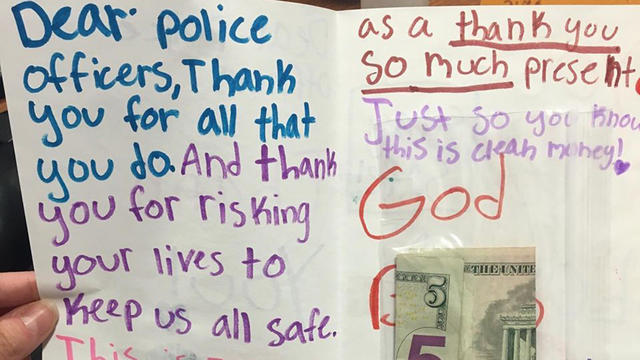 Dear: police
officers, Thank
you for all that
you do. And thank
you for risking
your lives to
keep us all safe.
This is
as a thank you
so much present.
Just so you know
this is clean money!
God
5
THE UNITE
5